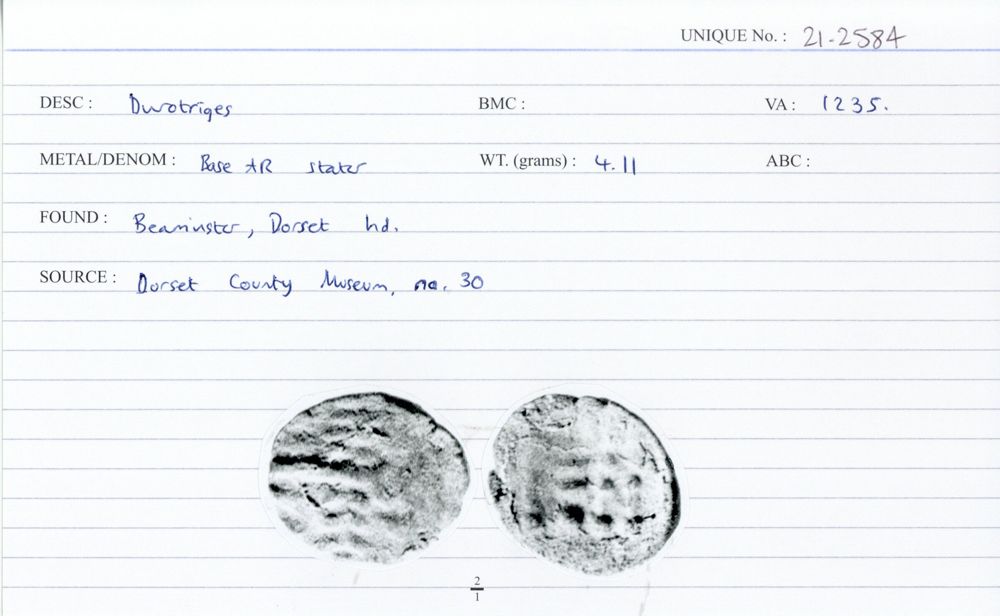 UNIQUE No. : 21-2584
DESC : Durotriges BMC : VA : 1235.
METAL/DENOM : Base AR stater WT. (grams) : 4.11 ABC :
FOUND : Beaminster, Dorset hd.
SOURCE : Dorset County Museum, no. 30
2
1